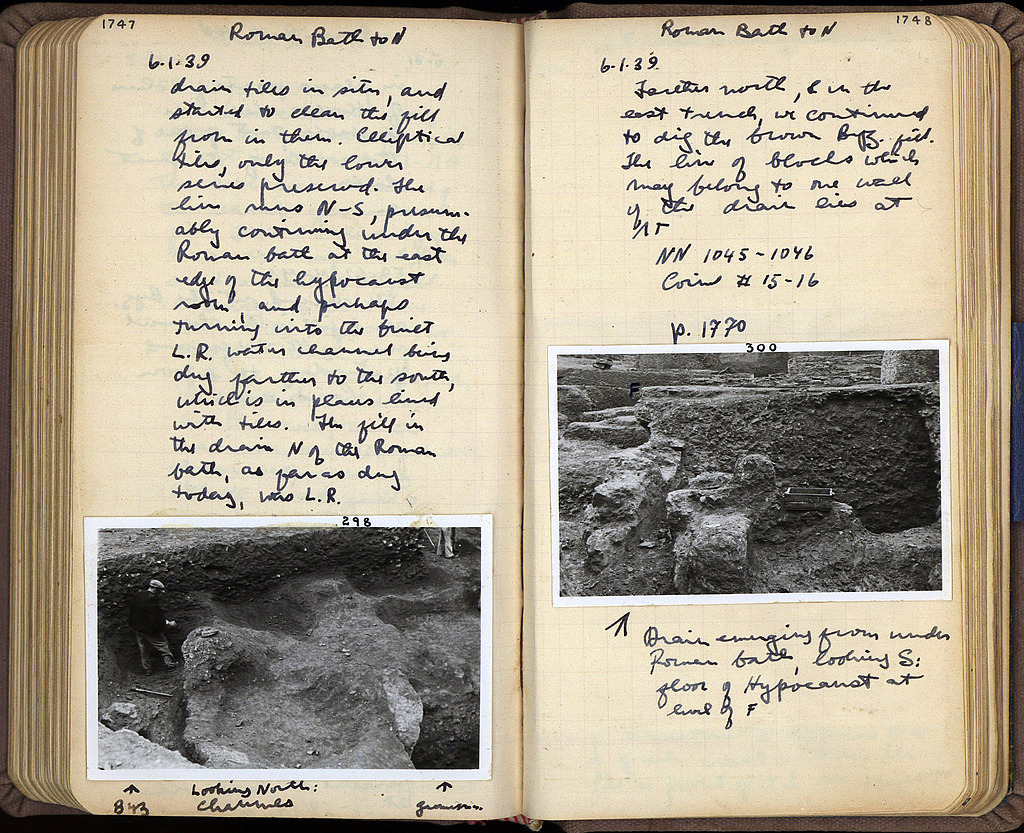 1747
Roman Bath to N
6.1.39
drain tiles in situ, and
started to clean the fill
from in them. Elliptical
tiles, only the lower
series preserved. The
line runs N-S, presum-
ably continuing under the
Roman bath at the east
edge of the hypocaust
room, and perhaps
turning into the built
L.R. water channel being
dug farther to the south,
which is in places lined
with tiles. The fill in
the drain N of the Roman
bath, as far as dug
today, was L.R.
298
↑ Looking North: ↑
Channels
1748
Roman Bath to N
6.1.39
Farther north, & in the
east trench, we continued
to dig the brown Byz. fill.
The line of blocks which
may belong to one wall
of the drain lies at
NN 1045-1046
Coins # 15-16
p. 1770
300
F
↑ Drain emerging from under
Roman bath, looking S:
floor of Hypocaust at
level of F